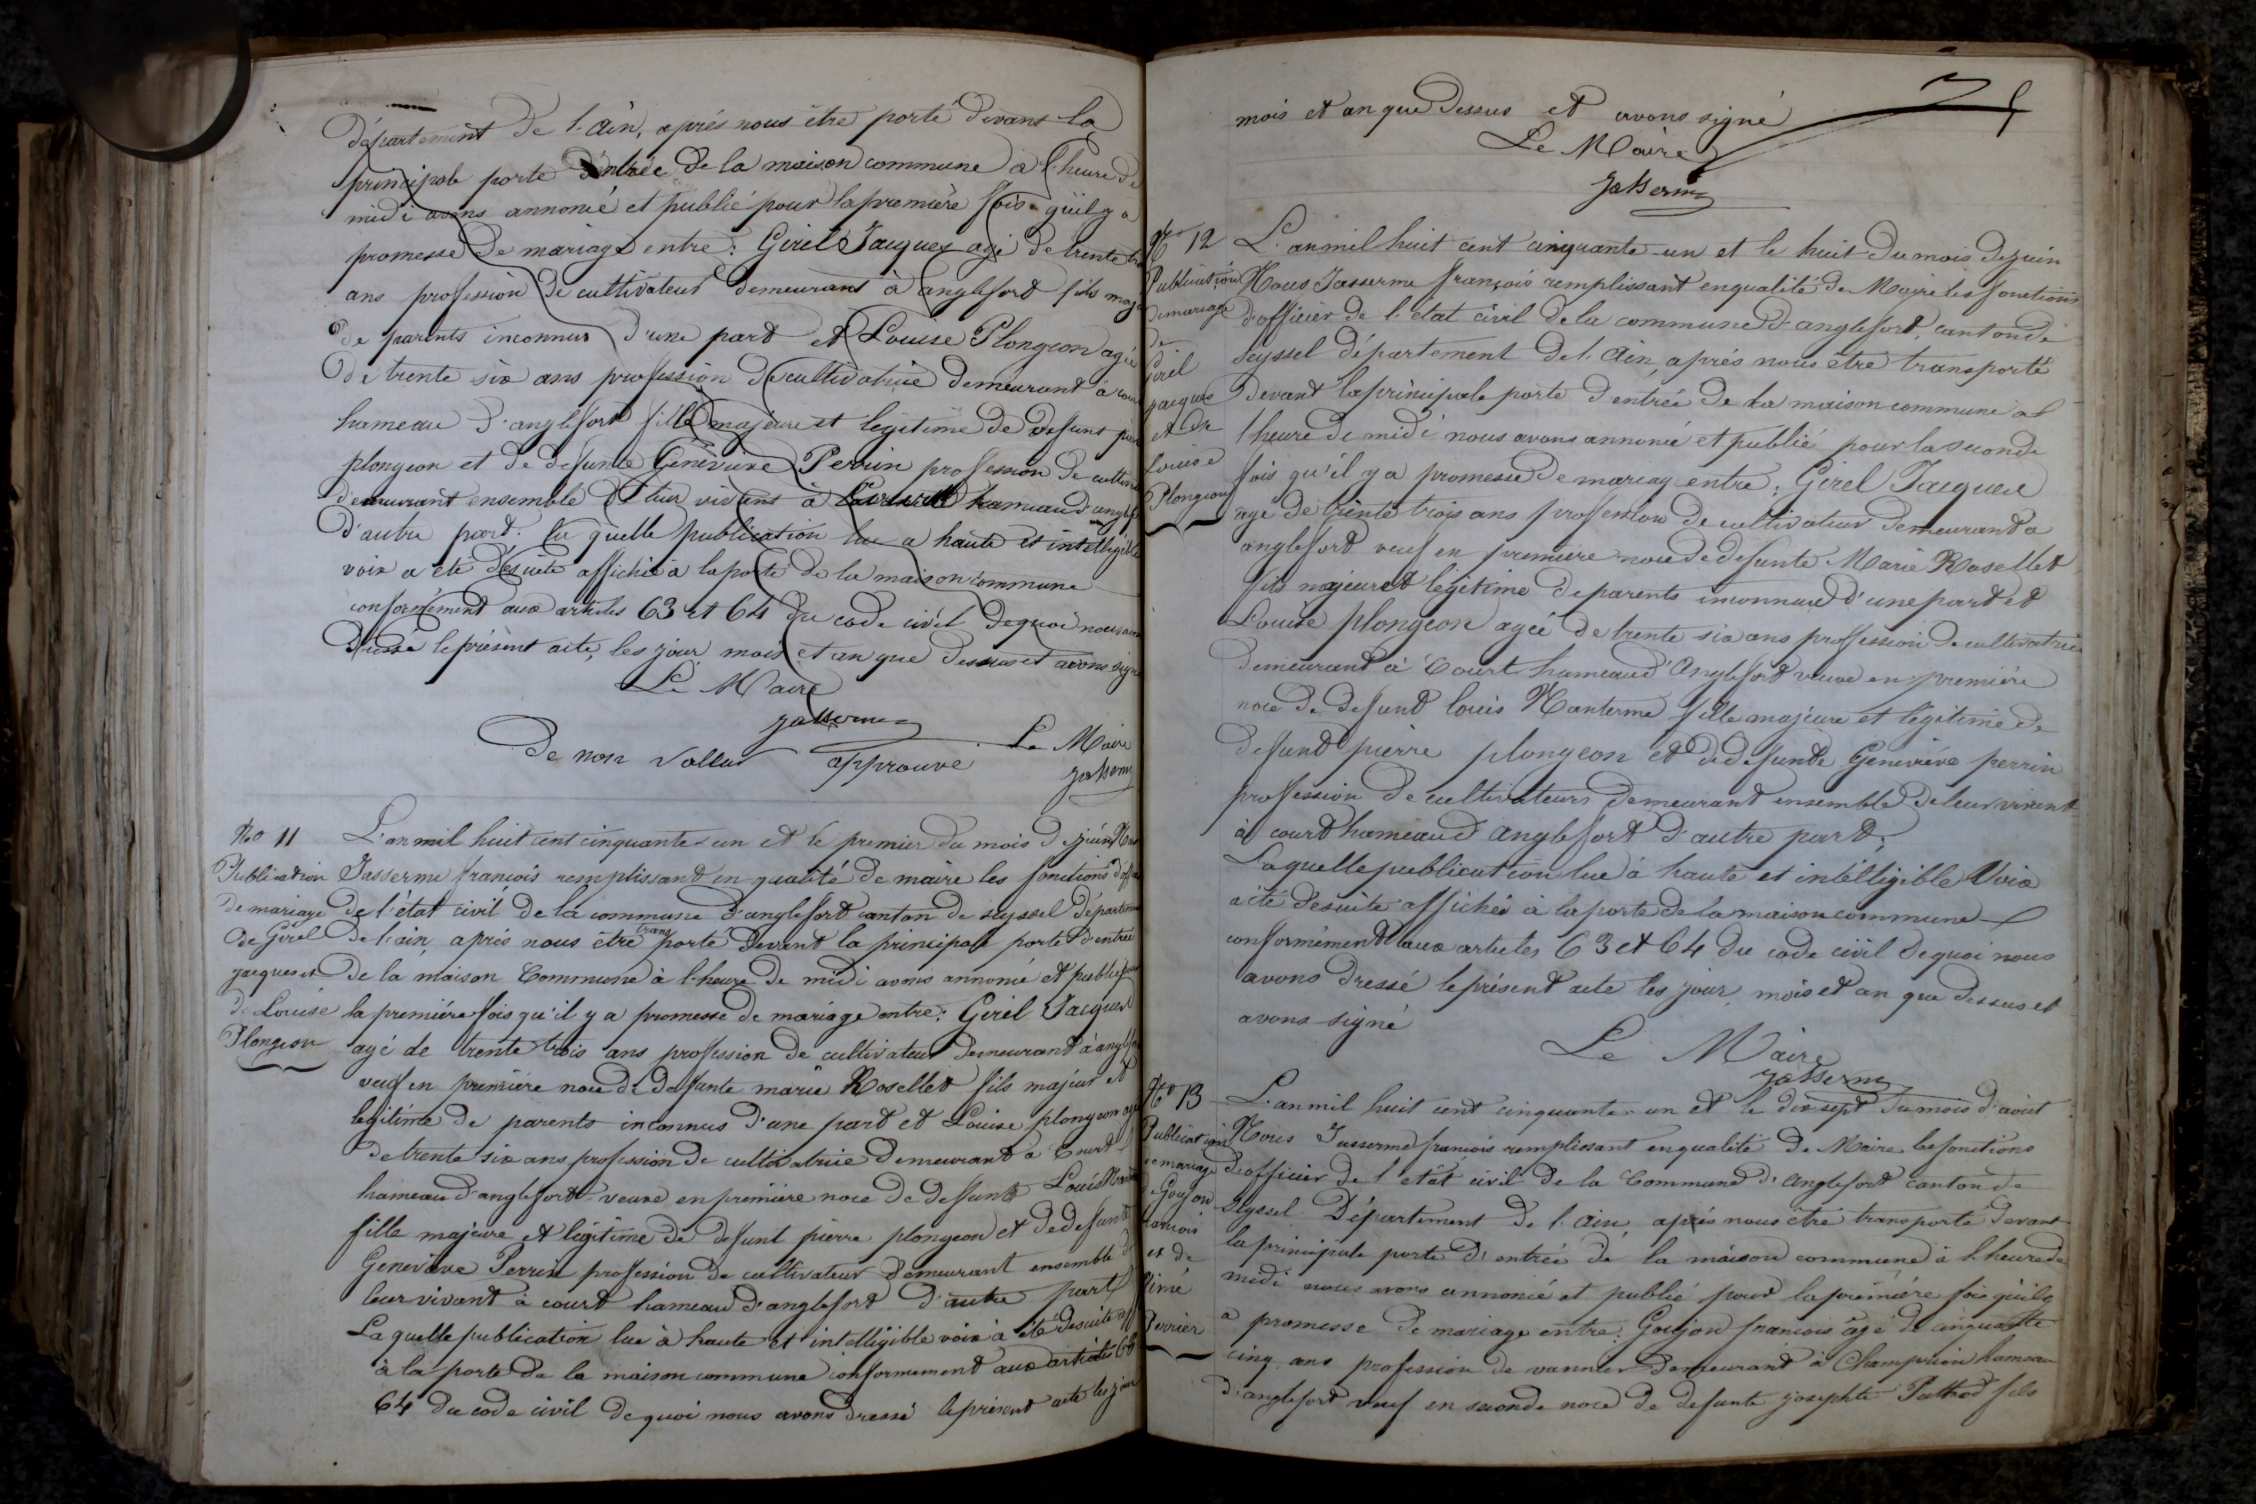 département de l'Ain, après nous être porté devant la
principale porte d'entrée de la maison commune à l'heure de
midi avons annoncé et publié pour la première fois qu'il y a
promesse de mariage entre: Girel Jacques agé de trente
ans profession de cultivateur demeurant à anglefort fils
de parents inconnus d'une part et Louise Plongeon agée
de trente six ans profession de cultivatrice demeurant à
hameau d'anglefort fille majeure et légitime de defunt
plongeon et de defunte Genévieve Perrin profession de
demeurant ensemble de leur vivant à hameau
d'autre part. la quelle publication lue a haute et intelligible
voix a été desuite affichée à la porte de la maison commune
conformément aux articles 63 et 64 du code civil de quoi nous avons
dressé le présent acte, les jour mois et an que dessus et avons signé
Le Maire
Jasserme
De non valleur approuvé Le Maire
Jasserme
No 11
Publication
de mariage
de Girel
jacques et
de Louise
Plongeon
L'an mil huit cent cinquante un et le premier du mois de juin Nous
Jasserme françois remplissant en qualité de maire les fonctions
de l'état civil de la commune d'anglefort canton de seyssel Départem
de l'ain, après nous être transporté devant la principale porte d'entrée
de la maison Commune à l'heure de midi avons annoncé et publié
la première fois qu'il y a promesse de mariage entre: Girel Jacques
agé de trente trois ans profession de cultivateur demeurant à
veuf en première noce de defunte marie Rosellet fils majeur et
legitime de parents inconnus d'une part et Louise plongeon
de trente six ans profession de cultivatrice demeurant à Court
hameau d'anglefort veuve en première noce de defunt Louis
fille majeure et légitime de defunt pierre plongeon et de defunte
Genevieve Perrin profession de cultivateur demeurant ensemble
leur vivant à court hameau d'anglefort d'autre part
La quelle publication lue à haute et intelligible voix à été desuite
à la porte de la maison commune conformement aux articles 63
64 du code civil de quoi nous avons dressé le présent acte les jour
mois et an que dessus et avons signé
Le Maire
Jasserme
No 12
Publication
de mariage
de
Girel
jacques
et de
Louise
Plongeon
L'an mil huit cent cinquante-un et le huit du mois de juin
Nous Jasserme françois remplissant en qualité de Maire les fonctions
d'officier de l'état civil de la commune d'anglefort, canton de
seyssel département de l'Ain, après nous être transporté
devant la principale porte d'entrée de la maison commune a
l'heure de midi nous avons annoncé et publié pour la seconde
fois qu'il y a promesse de mariag entre: Girel Jacques
agé de trente trois ans profession de cultivateur demeurant a
anglefort veuf en première noce de defunte Marie Rosellet
fils majeur et légitime de parents inconnus d'une part et
Louise plongeon agée de trente six ans profession de cultivatrice
demeurant à Court hameau d'Anglefort veuve en première
noce de defunt louis Nanterme fille majeure et légitime de
defunt pierre plongeon et de defunte Geneviève perrin
profession de cultivateurs demeurant ensemble de leur vivant
à court hameau d'anglefort d'autre part,
Laquelle publication lue à haute et intélligible Voix
a été desuite affichée à la porte de la maison commune
conformément aux articles 63 et 64 du code civil de quoi nous
avons dressé le présent acte les jour, mois et an que dessus et
avons signé
Le Maire
Jasserme
No 13
Publication
de mariage
de Goujon
francois
et de
Perrier
L'an mil huit cent cinquante-un et le dix sept du mois d'aout
Nous Jasserme françois remplissant en qualité de Maire les fonctions
d'officier de l'etat civil de la Commune d'Anglefort canton de
Seyssel Département de l'Ain, après nous être transporté devant
la principale porte d'entrée de la maison commune à l'heure de
midi nous avons annoncé et publié pour la première fois qu'il y
a promesse de mariage entre: Goujon francois agé de cinquante
cinq ans profession de vannier demeurant à hameau
d'anglefort veuf en seconde noce de defunte josephte fils